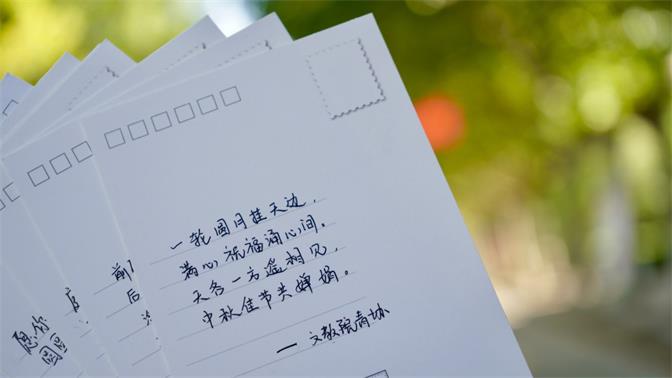 一轮圆月挂天边，
满心祝福涌心间。
天各一方遥相见，
中秋佳节共婵娟。
— 文教院青协
前
后
愿你
圆圆